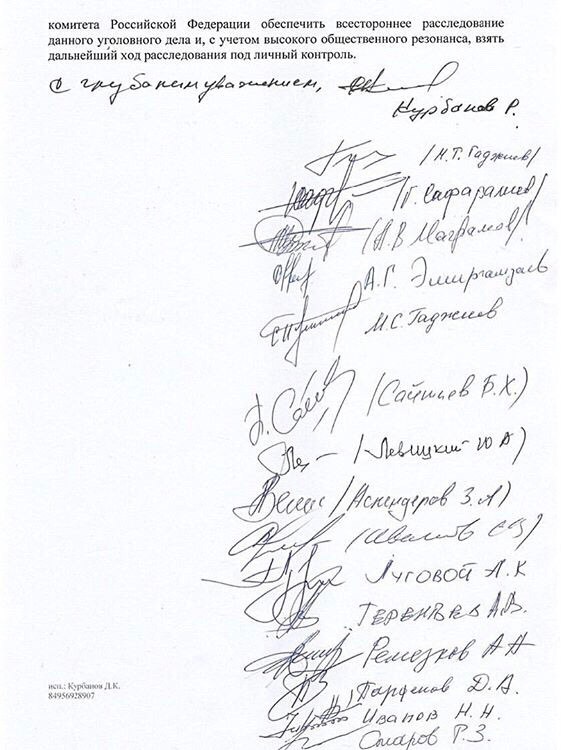 комитета Российской Федерации обеспечить всестороннее расследование
данного уголовного дела и, с учетом высокого общественного резонанса, взять
дальнейший ход расследования под личный контроль.
С глубоким уважением,
Курбанов Р.
/Н.Г. Гаджиев/
/Г. Сафаралиев/
/А.В Маграмов/
А.Г. Эмиргамзаев
М.С. Гаджиев
(Сайтиев Б.Х.)
(Левицкий Ю А)
/Аскендеров З.А)
Луговой А.К
ТЕРЕНТЬЕВ А.В.
Ремезков А А
Парфенов Д.А.
Иванов Н.Н.
Омаров Г.З.
исп.: Курбанов Д.К.
84956928907